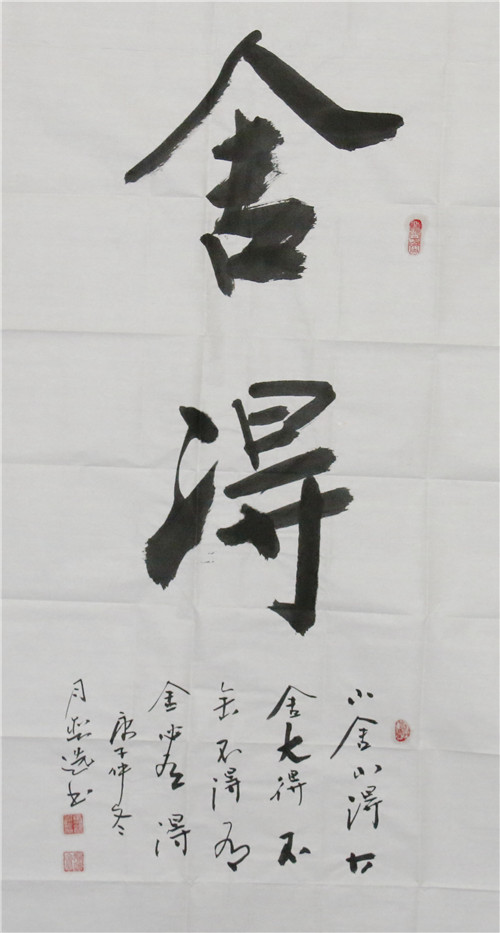 舍得
小舍小得大
舍大得不
舍不得有
舍必有得
庚子仲冬
月 书